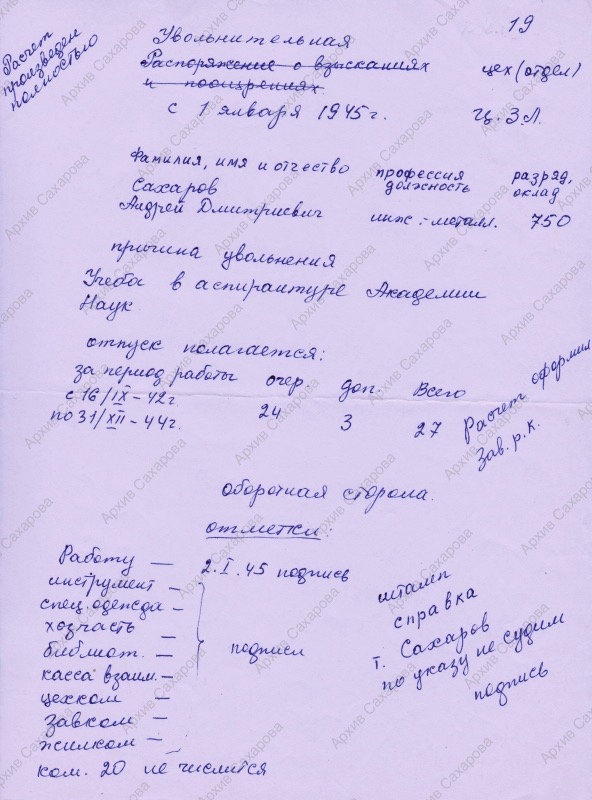 19
Расчет
произведен
полностью
Увольнительная
Распоряжение о взысканиях
и поощрениях
цех (отдел)
с 1 января 1945 г.
Ц.З.Л.
Фамилия, имя и отчество профессия разряд,
должность оклад
Сахаров
Андрей Дмитриевич инж.-металл. 750
причина увольнения
Учеба в аспирантуре Академии
Наук
отпуск полагается:
за период работы очер. доп. Всего
с 16/IX-42г
по 31/XII-44г. 24 3 27
Расчет оформил
Зав. р. к.
оборотная сторона.
отметки:
Работу — 2.I.45 подпись
инструмент —
спец. одежда —
хозчасть —
библиот. — подписи
касса взаим. —
цехком —
завком —
жилком —
ком. 20 не числится
штамп
справка
т. Сахаров
по указу не судим
подпись
Архив Сахарова